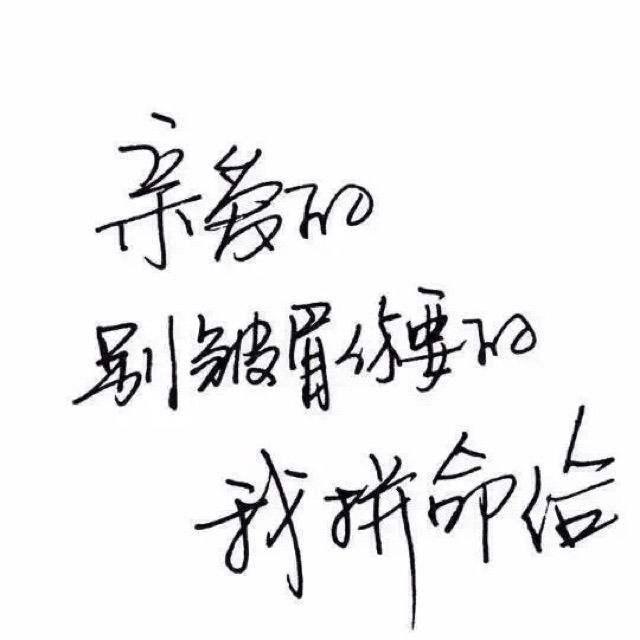 亲爱的
别皱眉你要的
我拼命给